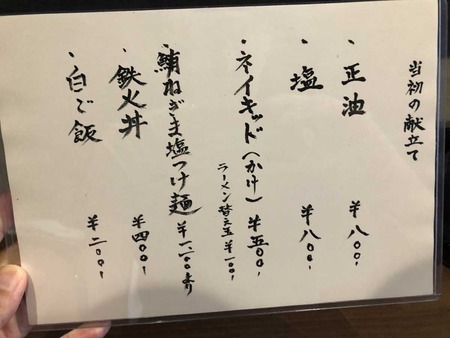 当初の献立て
・正油 ¥八〇〇、
・塩 ¥八〇〇、
・ネイキッド(かけ) ¥五〇〇、
ラーメン替え玉 ¥一〇〇、
・鮪ねぎま塩つけ麺 ¥一、一〇〇より
・鉄火丼 ¥四〇〇、
・白ご飯 ¥二〇〇、